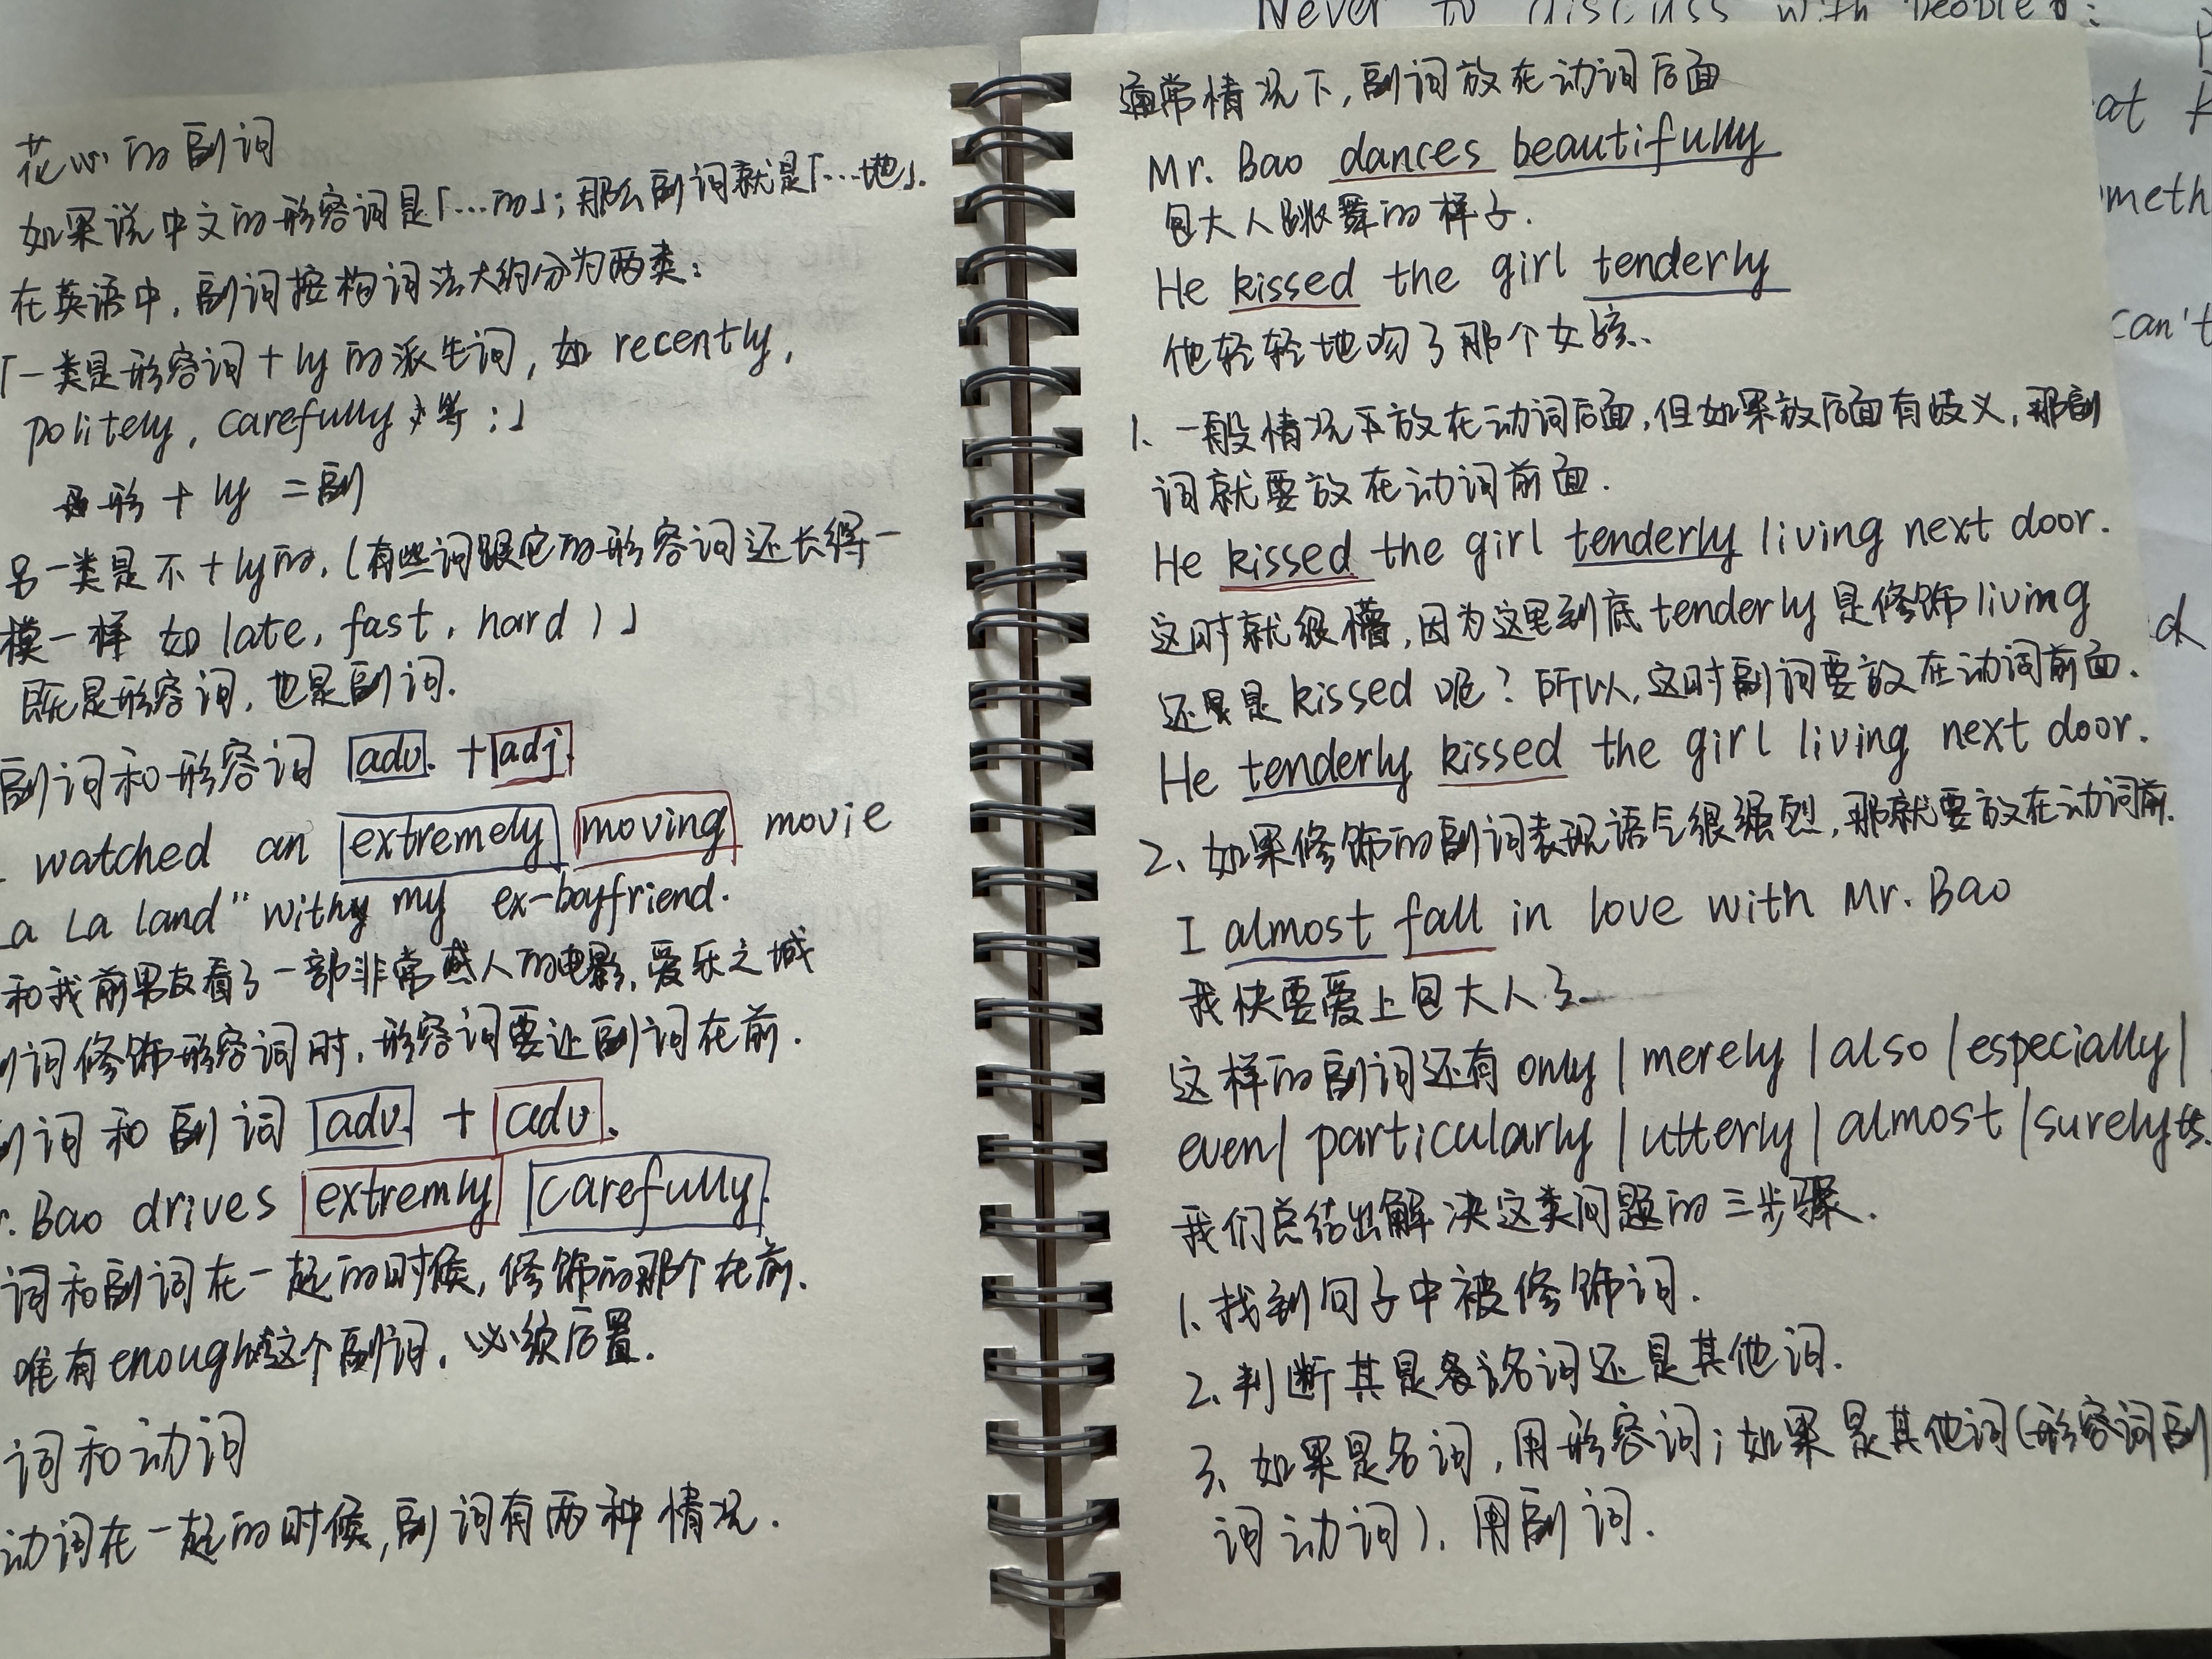 花心的副词
如果说中文的形容词是「…的」；那么副词就是「…地」.
在英语中,副词按构词法大约分为两类：
「一类是形容词+ly的派生词, 如 recently,
politely, carefully 等；」
形 + ly = 副
另一类是不+ly的,(有些词跟它的形容词还长得一
模一样 如 late, fast, hard)」
既是形容词, 也是副词.
副词和形容词 adv. + adj.
watched an extremely moving movie
a La land" with my ex-boyfriend.
和我前男友看了一部非常感人的电影, 爱乐之城
词修饰形容词时, 形容词要让副词在前.
词和副词 adv. + adv.
. Bao drives extremly carefully.
词和副词在一起的时候, 修饰的那个在前.
唯有enough这个副词, 必须后置.
词和动词
动词在一起的时候,副词有两种情况.
通常情况下,副词放在动词后面
Mr. Bao dances beautifully
包大人跳舞的样子.
He kissed the girl tenderly
他轻轻地吻了那个女孩.
1、一般情况下放在动词后面,但如果放后面有歧义,那副
词就要放在动词前面.
He kissed the girl tenderly living next door.
这时就很懵,因为这里到底tenderly是修饰living
还是是kissed呢? 所以,这时副词要放在动词前面.
He tenderly kissed the girl living next door.
2、如果修饰的副词表现语气很强烈,那就要放在动词前.
I almost fall in love with Mr. Bao
我快要爱上包大人了
这样的副词还有only | merely | also | especially |
even | particularly | utterly | almost | surely
我们总结出解决这类问题的三步骤.
1、找到句子中被修饰词.
2、判断其是名词还是其他词.
3、如果是名词, 用形容词；如果是其他词(形容词副
词动词), 用副词.
Never to discuss with people
at
meth
can't